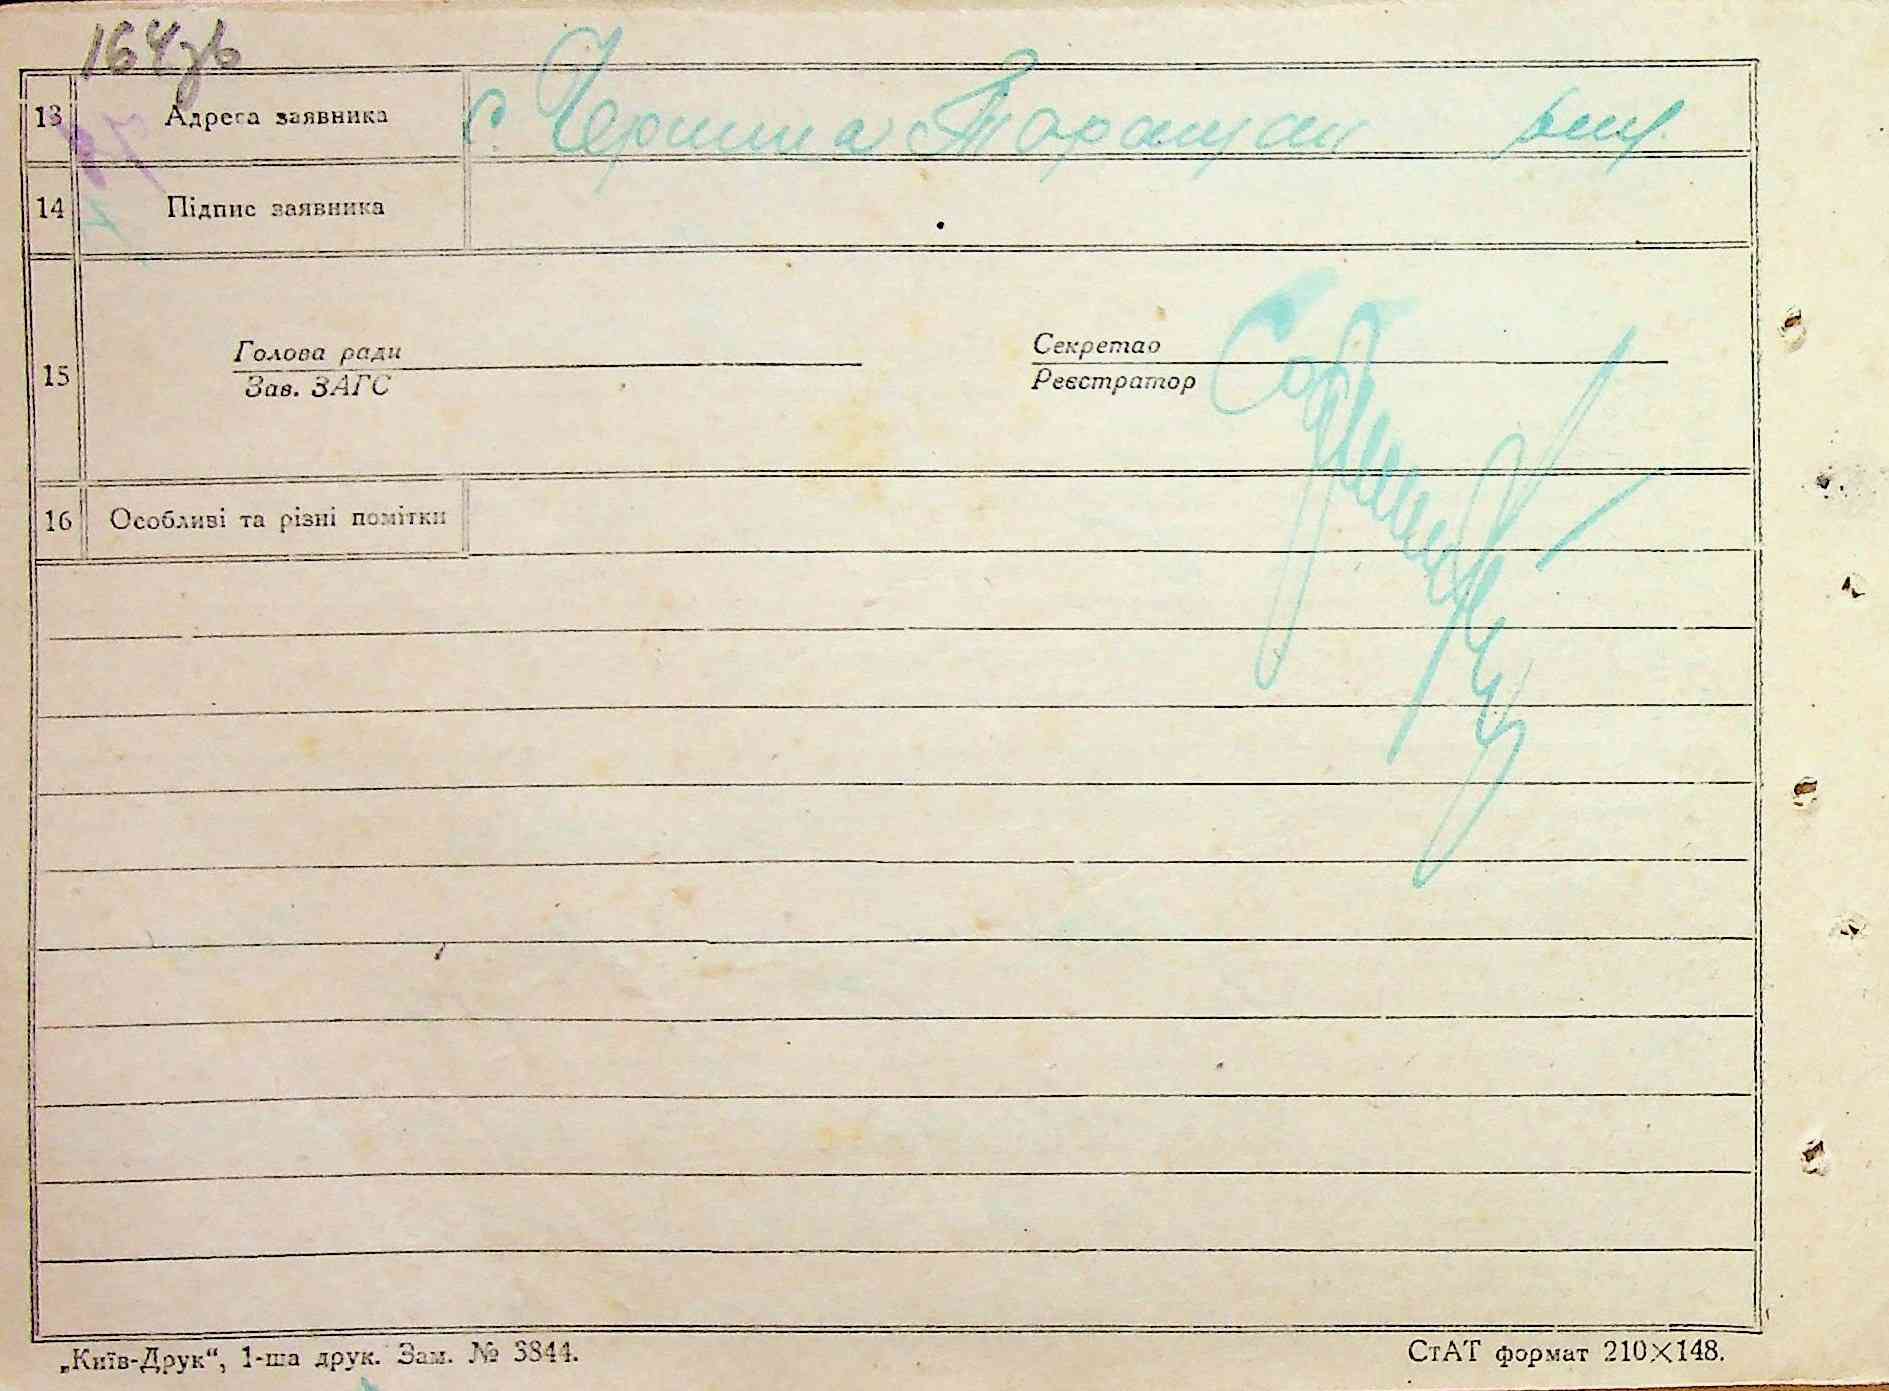 164зв
13 Адреса заявника с. Черпина Таращан
14 Підпис заявника
Голова ради Секретар
15
Зав. ЗАГС Реєстратор
16 Особливі та різні помітки
„Київ-Друк“, 1-ша друк. Зам. № 3844.
СтАТ формат 210×148.